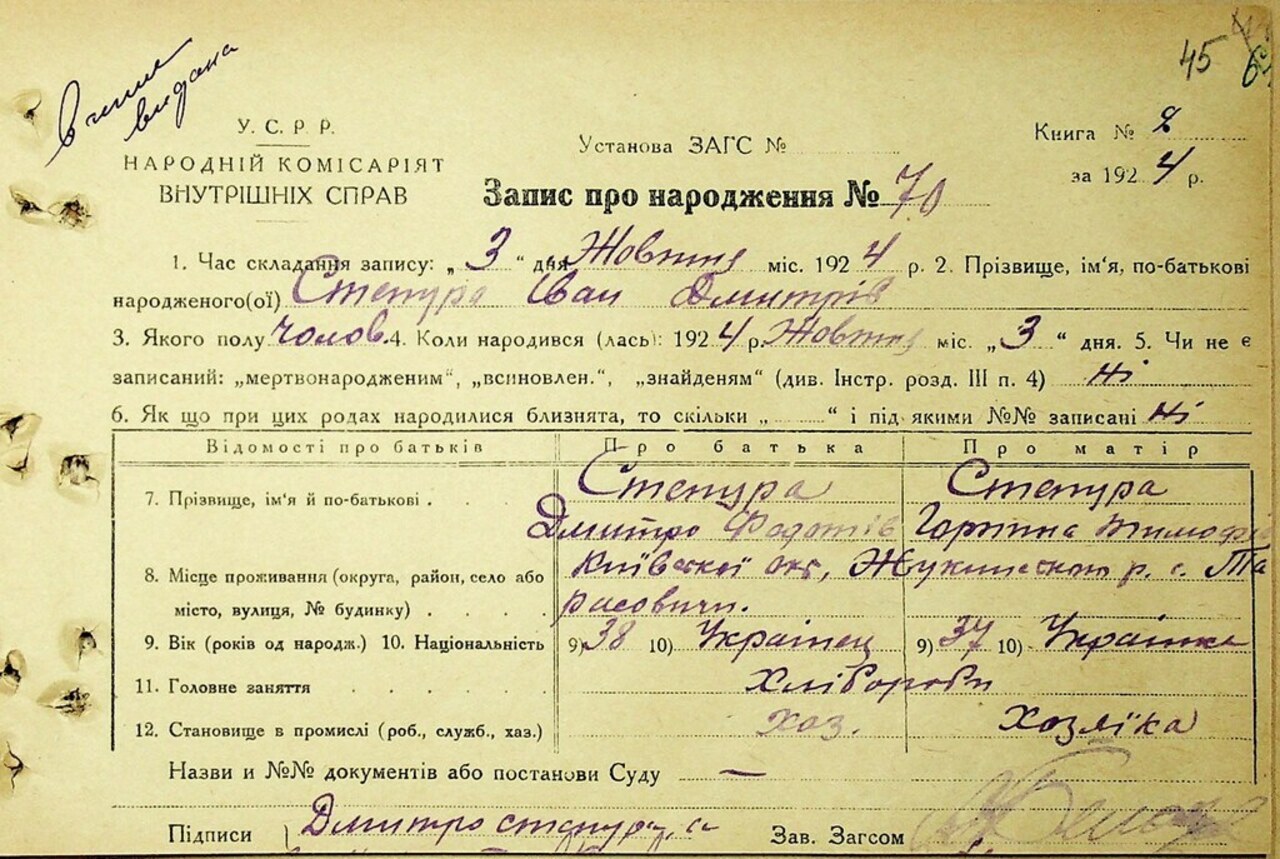 45
видана
У. С. Р. Р.
НАРОДНІЙ КОМІСАРІЯТ
ВНУТРІШНІХ СПРАВ
Установа ЗАГС №
Книга № 2
за 1924 р.
Запис про народження № 70
1. Час складання запису: „ 3 “ дня Жовтня міс. 1924 р. 2. Прізвище, ім'я, по-батькові
народженого(ої) Степура Іван Дмитрів
3. Якого полу чолов. 4. Коли народився (лась): 1924 р. Жовтня міс. „ 3 “ дня. 5. Чи не є
записаний: „мертвонародженим“, „всиновлен.“, „знайденям“ (див. Інстр. розд. III п. 4) ні
6. Як що при цих родах народилися близнята, то скільки „ “ і під якими №№ записані ні
Відомості про батьків Про батька Про матір
7. Прізвище, ім'я й по-батькові . Степура Степура
Дмитро Федотів Горпина Тимофі
8. Місце проживання (округа, район, село або Київської окг, р. с. Та
місто, вулиця, № будинку) . . . . расовичи.
9. Вік (років од народж.) 10. Національність 9) 38 10) Українец 9) 37 10) Українка
11. Головне заняття . . . . . Хлібороби
12. Становище в промислі (роб., служб., хаз.) хоз. хозяїка
Назви и №№ документів або постанови Суду —
Підписи } Дмитро степура, а
Зав. Загсом